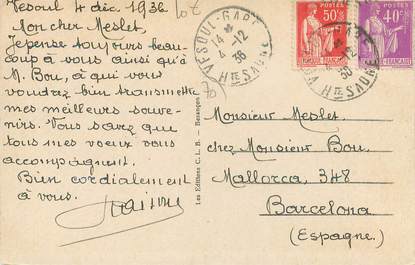 Vesoul 4 déc. 1936
Mon cher Meslet,
Je pense toujours beau-
coup à vous ainsi qu'à
M. Bou, à qui vous
voudrez bien transmettre
mes meilleurs souve-
nirs. Vous savez que
tous mes voeux vous
accompagnent.
Bien cordialement
à vous.
Les Editions C. L. B. - Besançon
VESOUL-GARE
14
4-12
36
Hte SAONE
POSTES
50c
RF
POSTES
40c
Monsieur Meslet,
chez Monsieur Bou,
Mallorca 348
Barcelona
(Espagne).